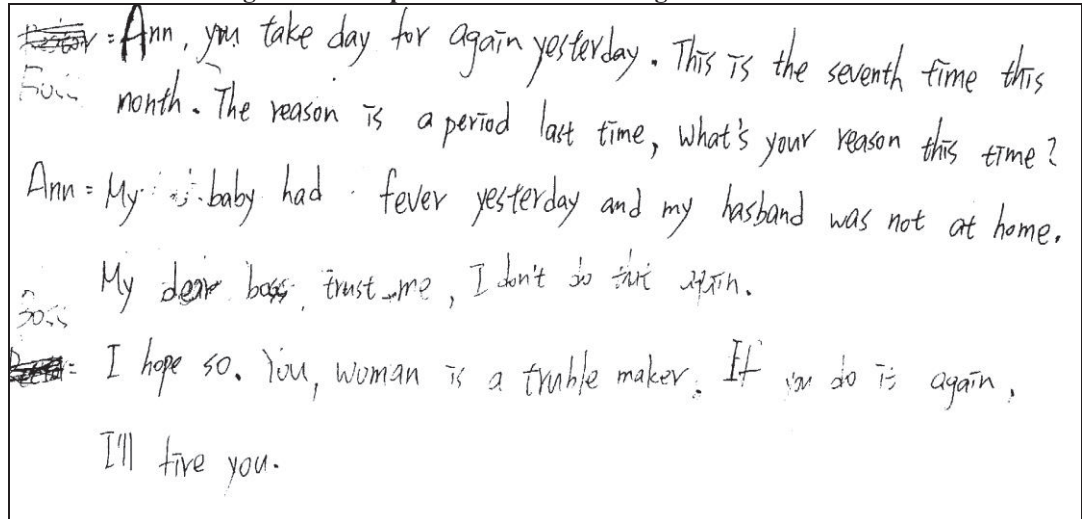 Boss : Ann, you take day for again yesterday. This is the seventh time this
month. The reason is a period last time, what's your reason this time?
Ann : My baby had fever yesterday and my hasband was not at home.
My dear boss, trust me, I don't do that again.
Boss : I hope so. You, woman is a truble maker. If you do is again,
I'll fire you.